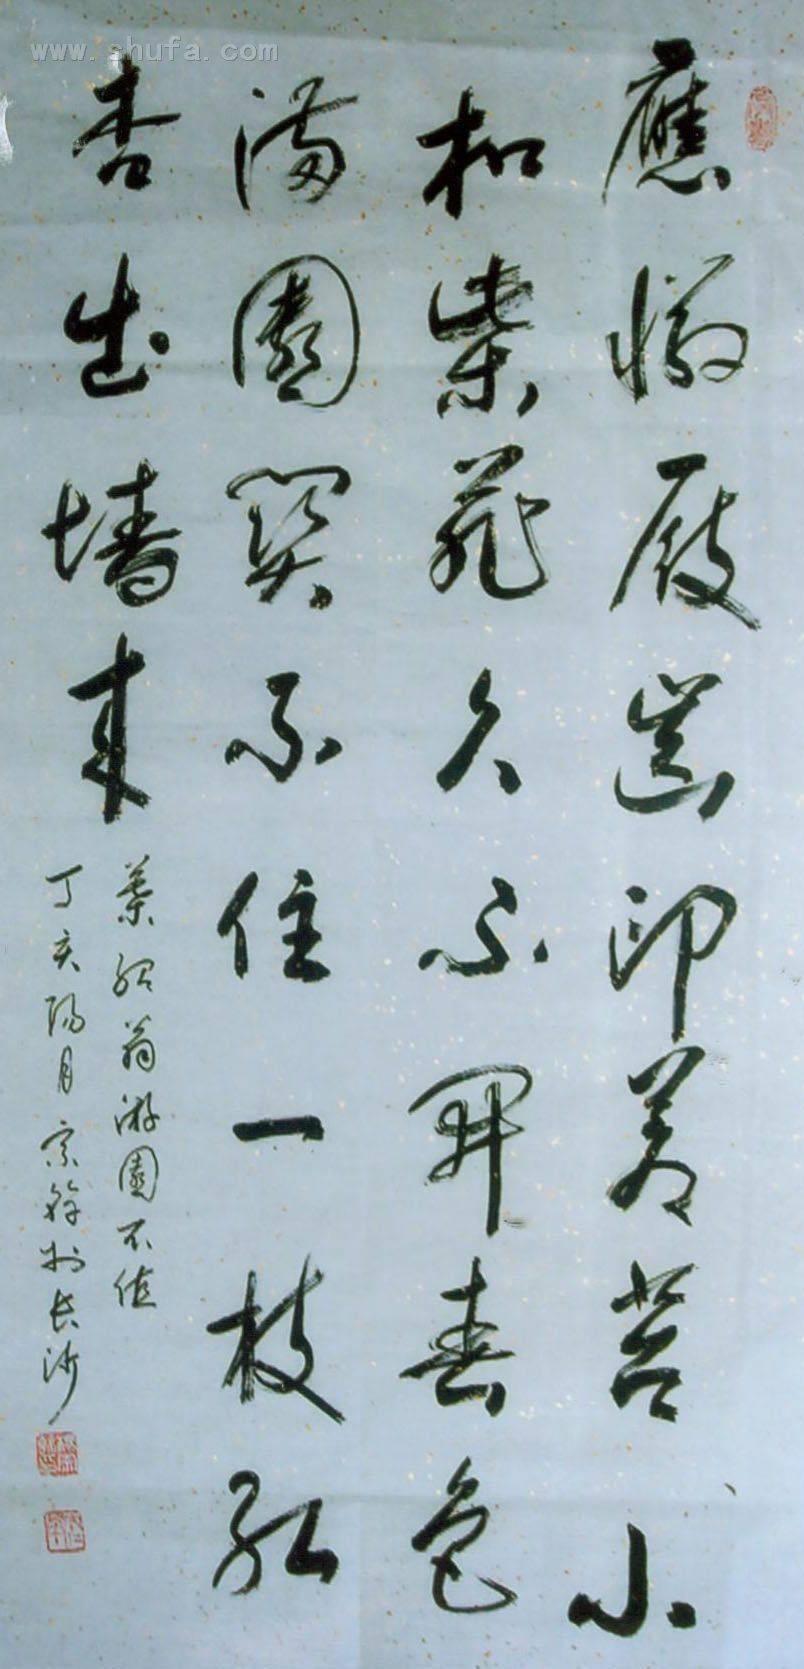 www.shufa.com
應憐屐齒印蒼苔小
扣柴扉久不開春色
滿園關不住一枝紅
杏出墻來
葉紹翁游園不值
丁亥陽月宗於长沙